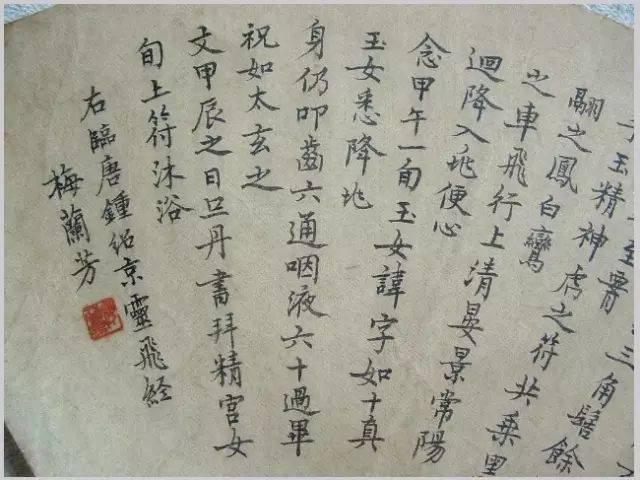 三角髻餘
至
玉精神虎之符共乘黑
翮之鳳白鸞
之車飛行上清晏景常陽
迴降入兆便心
念甲午一旬玉女諱字如十真
玉女悉降兆
身仍叩齒六通咽液六十過畢
祝如太玄之
文甲辰之日旦丹書拜精宮女
旬上符沐浴
右臨唐鍾紹京靈飛経
梅蘭芳